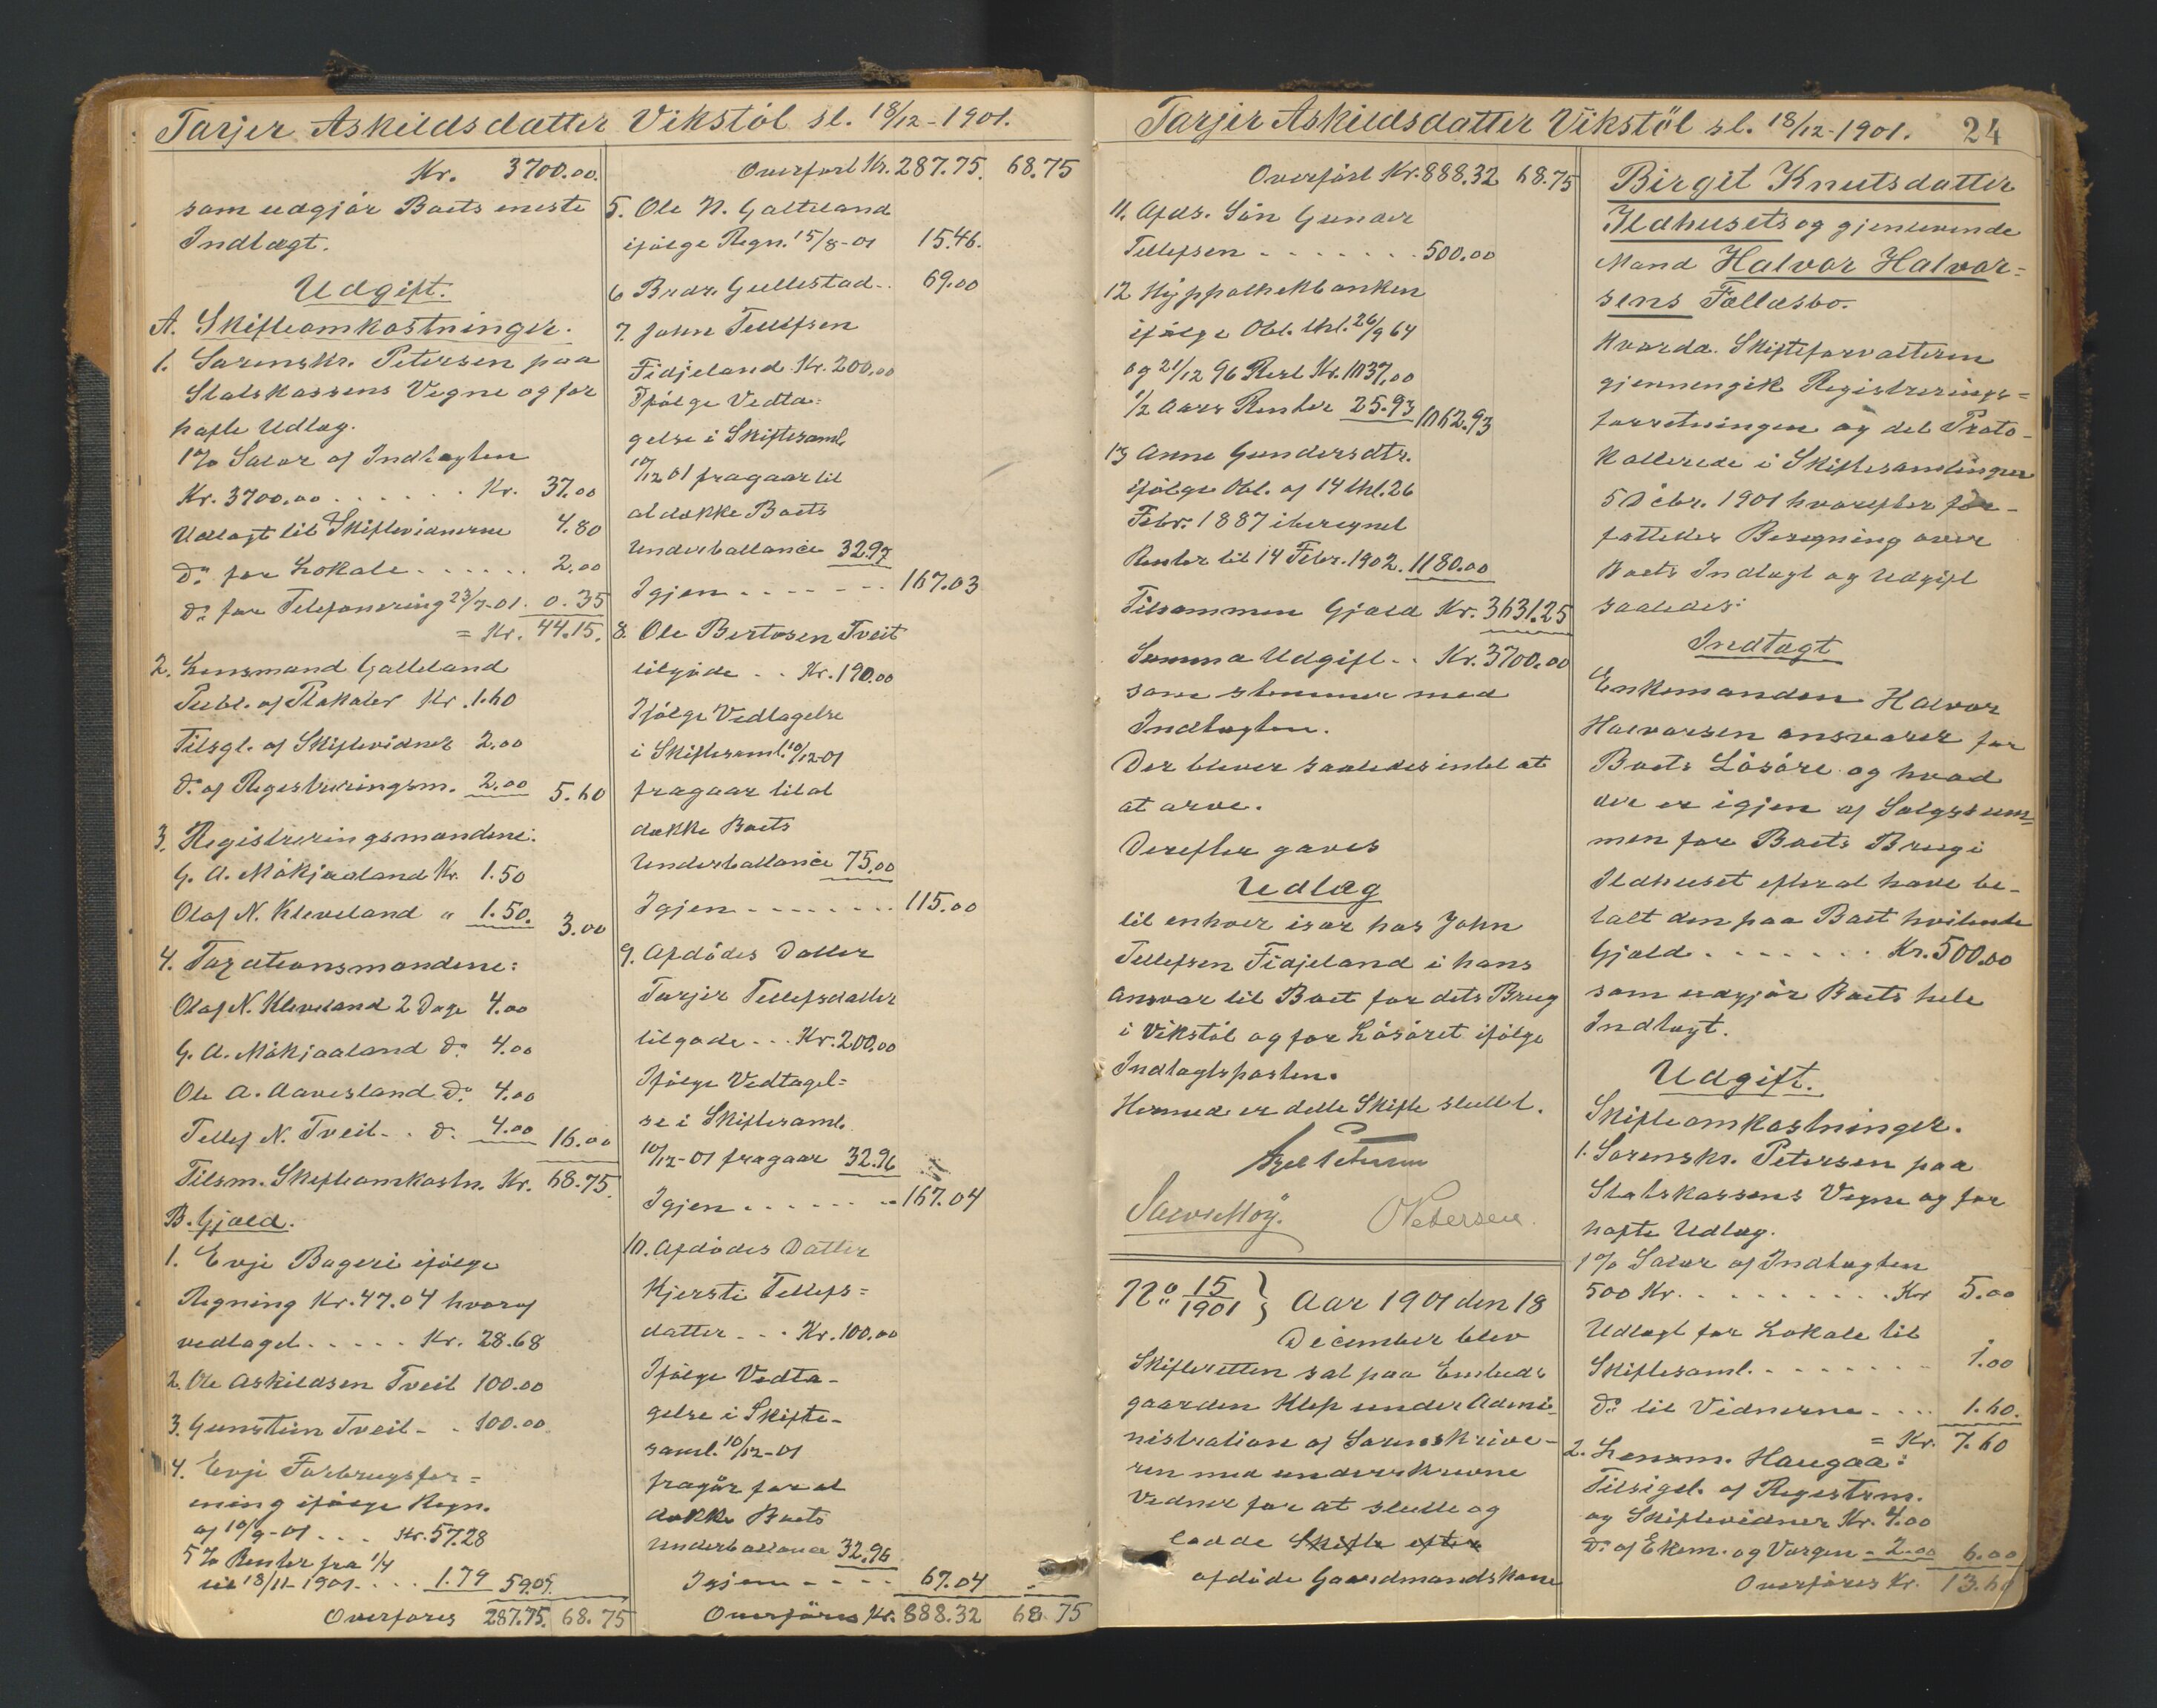 Tarjer Askildsdatter Vikstöl sl. 18/12-1901.
Kr. 3700.00.
som udgjör Boets eneste
Indtægt.
Udgift.
A. Skifteomkostninger.
1. Sorenskr. Petersen paa
Statskassens Vegne og for
hafte Udlæg.
1% Salær af Indtægten
Kr. 3700,00 . . . . . . Kr. 37.00
Udlagt til Skiftevidnerne 4.80
Do for Lokale . . . . . . 2.00
Do for Telefonering 23/7-01. 0.35
= Kr. 44.15.
2. Lensmand Galteland
Publ. af Plakater Kr. 1.60
Tilsgl. af Skiftevidner 2.00
Do af Registreringsm. 2.00 5.60
3. Registreringsmændene:
G. A. Mökjaaland Kr. 1.50
Olaf N. Kleveland " 1.50. 3.00
4. Taxationsmændene:
Olaf N. Kleveland 2 Dage 4.00
G. A. Mökjaaland Do 4.00
Ole A. Aavesland Do 4.00
Tellef N. Tveit . . Do 4.00 16.00
Tilsm. Skifteomkostn. Kr. 68.75.
B. Gjæld.
1. Evje Bageri ifölge
Regning Kr. 47.04 hvoraf
vedtaget . . . . . Kr. 28.68
2. Ole Askildsen Tveit 100.00
3. Gunstein Tveit - . 100.00
4. Evje Forbrugsfor=
ening ifölge Regn.
af 10/9-01 . . . Kr. 57.28
5% Renter fra 1/4
til 18/11-1901. . . . 1.79 59.07.
Overföres 287.75. 68.75
Overfört Kr. 287.75. 68.75
5. Ole N. Galteland
ifölge Regn. 15/8-01 15.46.
6 Brdr. Gullestad . . 69.00
7. John Tellefsen
Fidjeland Kr. 200,00
Ifölge Vedta=
gelse i Skiftesaml.
10/12 01 fragaar til
at dække Boets
Underballance 32.97
Igjen . . . . . . . 167.03
8. Ole Bertosen Tveit
tilgode . . Kr. 190.00
Ifölge Vedtagelse
i Skiftesaml. 10/12-01
fragaar til at
dække Boets
Underballance 75,00
Igjen . . . . . . . 115.00
9. Afdödes Datter
Tarjer Tellefsdatter
tilgode . . . Kr. 200,00
Ifölge Vedtagel=
se i Skiftesaml.
10/12-01 fragaar 32.96
Igjen . . . . . . . 167.04
10. Afdödes Datter
Kjersti Tellefs=
datter . . . Kr. 100.00
Ifölge Vedta-
gelse i Skifte-
saml. 10/12-01
fragår for at
dække Boets
Underballance 32.96
Igjen . . . . 67.04
Overföres Kr. 888.32 68.75
Tarjer Askildsdatter Vikstöl sl. 18/12-1901. 24
Overfört Kr. 888.32 68.75
11. Afds. Sön Gunder
Tellefsen . . . . . . . 500.00
12 Hyppothekbanken
ifölge Obl. thl. 26/9 64
og 21/12 96 Rest Kr. 1137,00
1/2 Aars Renter 25.93 1162.93
13 Anne Gundersdtr.
ifölge Obl. af 14 thl. 26
Febr. 1887 iberegnet
Renter til 14 Febr. 1902. 1180.00
Tilsammen Gjæld Kr. 3631.25
Summa Udgift . . Kr. 3700.00
som stemmer med
Indtægten.
Der blever saaledes intet at
at arve.
Derefter gaves
Udlæg
til enhver især hos John
Tellefsen Fidjeland i hans
Ansvar til Boet for dets Brug
i Vikstöl og for Lösöret ifölge
Indtægtsposten.
Hermed er dette Skifte sluttet.
Petersen
Petersen.
No 15/1901 } Aar 1901 den 18
December blev
Skifteretten sat paa Embeds
gaarden Klep under Admi-
nistration af Sorenskrive-
ren med underskrevne
Vidner for at slutte og
lodde Skifte efter
afdöde Gaardmandskone
Birgit Knutsdatter
Ildhusets og gjenlevende
Mand Halvor Halvor=
sens Fællesbo.
Hvorda. Skifteforvalteren
gjennemgik Registrerings=
forretningen og det Proto-
kollerede i Skiftesamlingen
5 Dcbr. 1901 hvorefter for-
fattedes Beregning over
Boets Indtægt og Udgift
saaledes:
Indtægt
Enkemanden Halvor
Halvorsen ansvarer for
Boets Lösöre og hvad
der er igjen af Salgssum=
men for Boets Brug i
Ildhuset efter at have be-
talt den paa Boet hvilende
Gjæld . . . . . . . Kr. 500.00
som udgjör Boets hele
Indtægt.
Udgift.
Skifteomkostninger.
1. Sorenskr. Petersen paa
Statskassens Vegne og for
hafte Udlæg.
1% Salær af Indtægten
500 Kr. . . . . . . . . . Kr 5.00
Udlagt for Lokale til
Skiftesaml. . . . . . . . 1.00
Do til Vidnerne . . . . 1.60.
= Kr. 7.60
2. Lensm. Haugaa:
Tilsigel. af Registrm.
og Skiftevidner Kr. 4.00
Do af Ekem. og Værgen - 2.00 6.00
Overföres Kr. 13.60